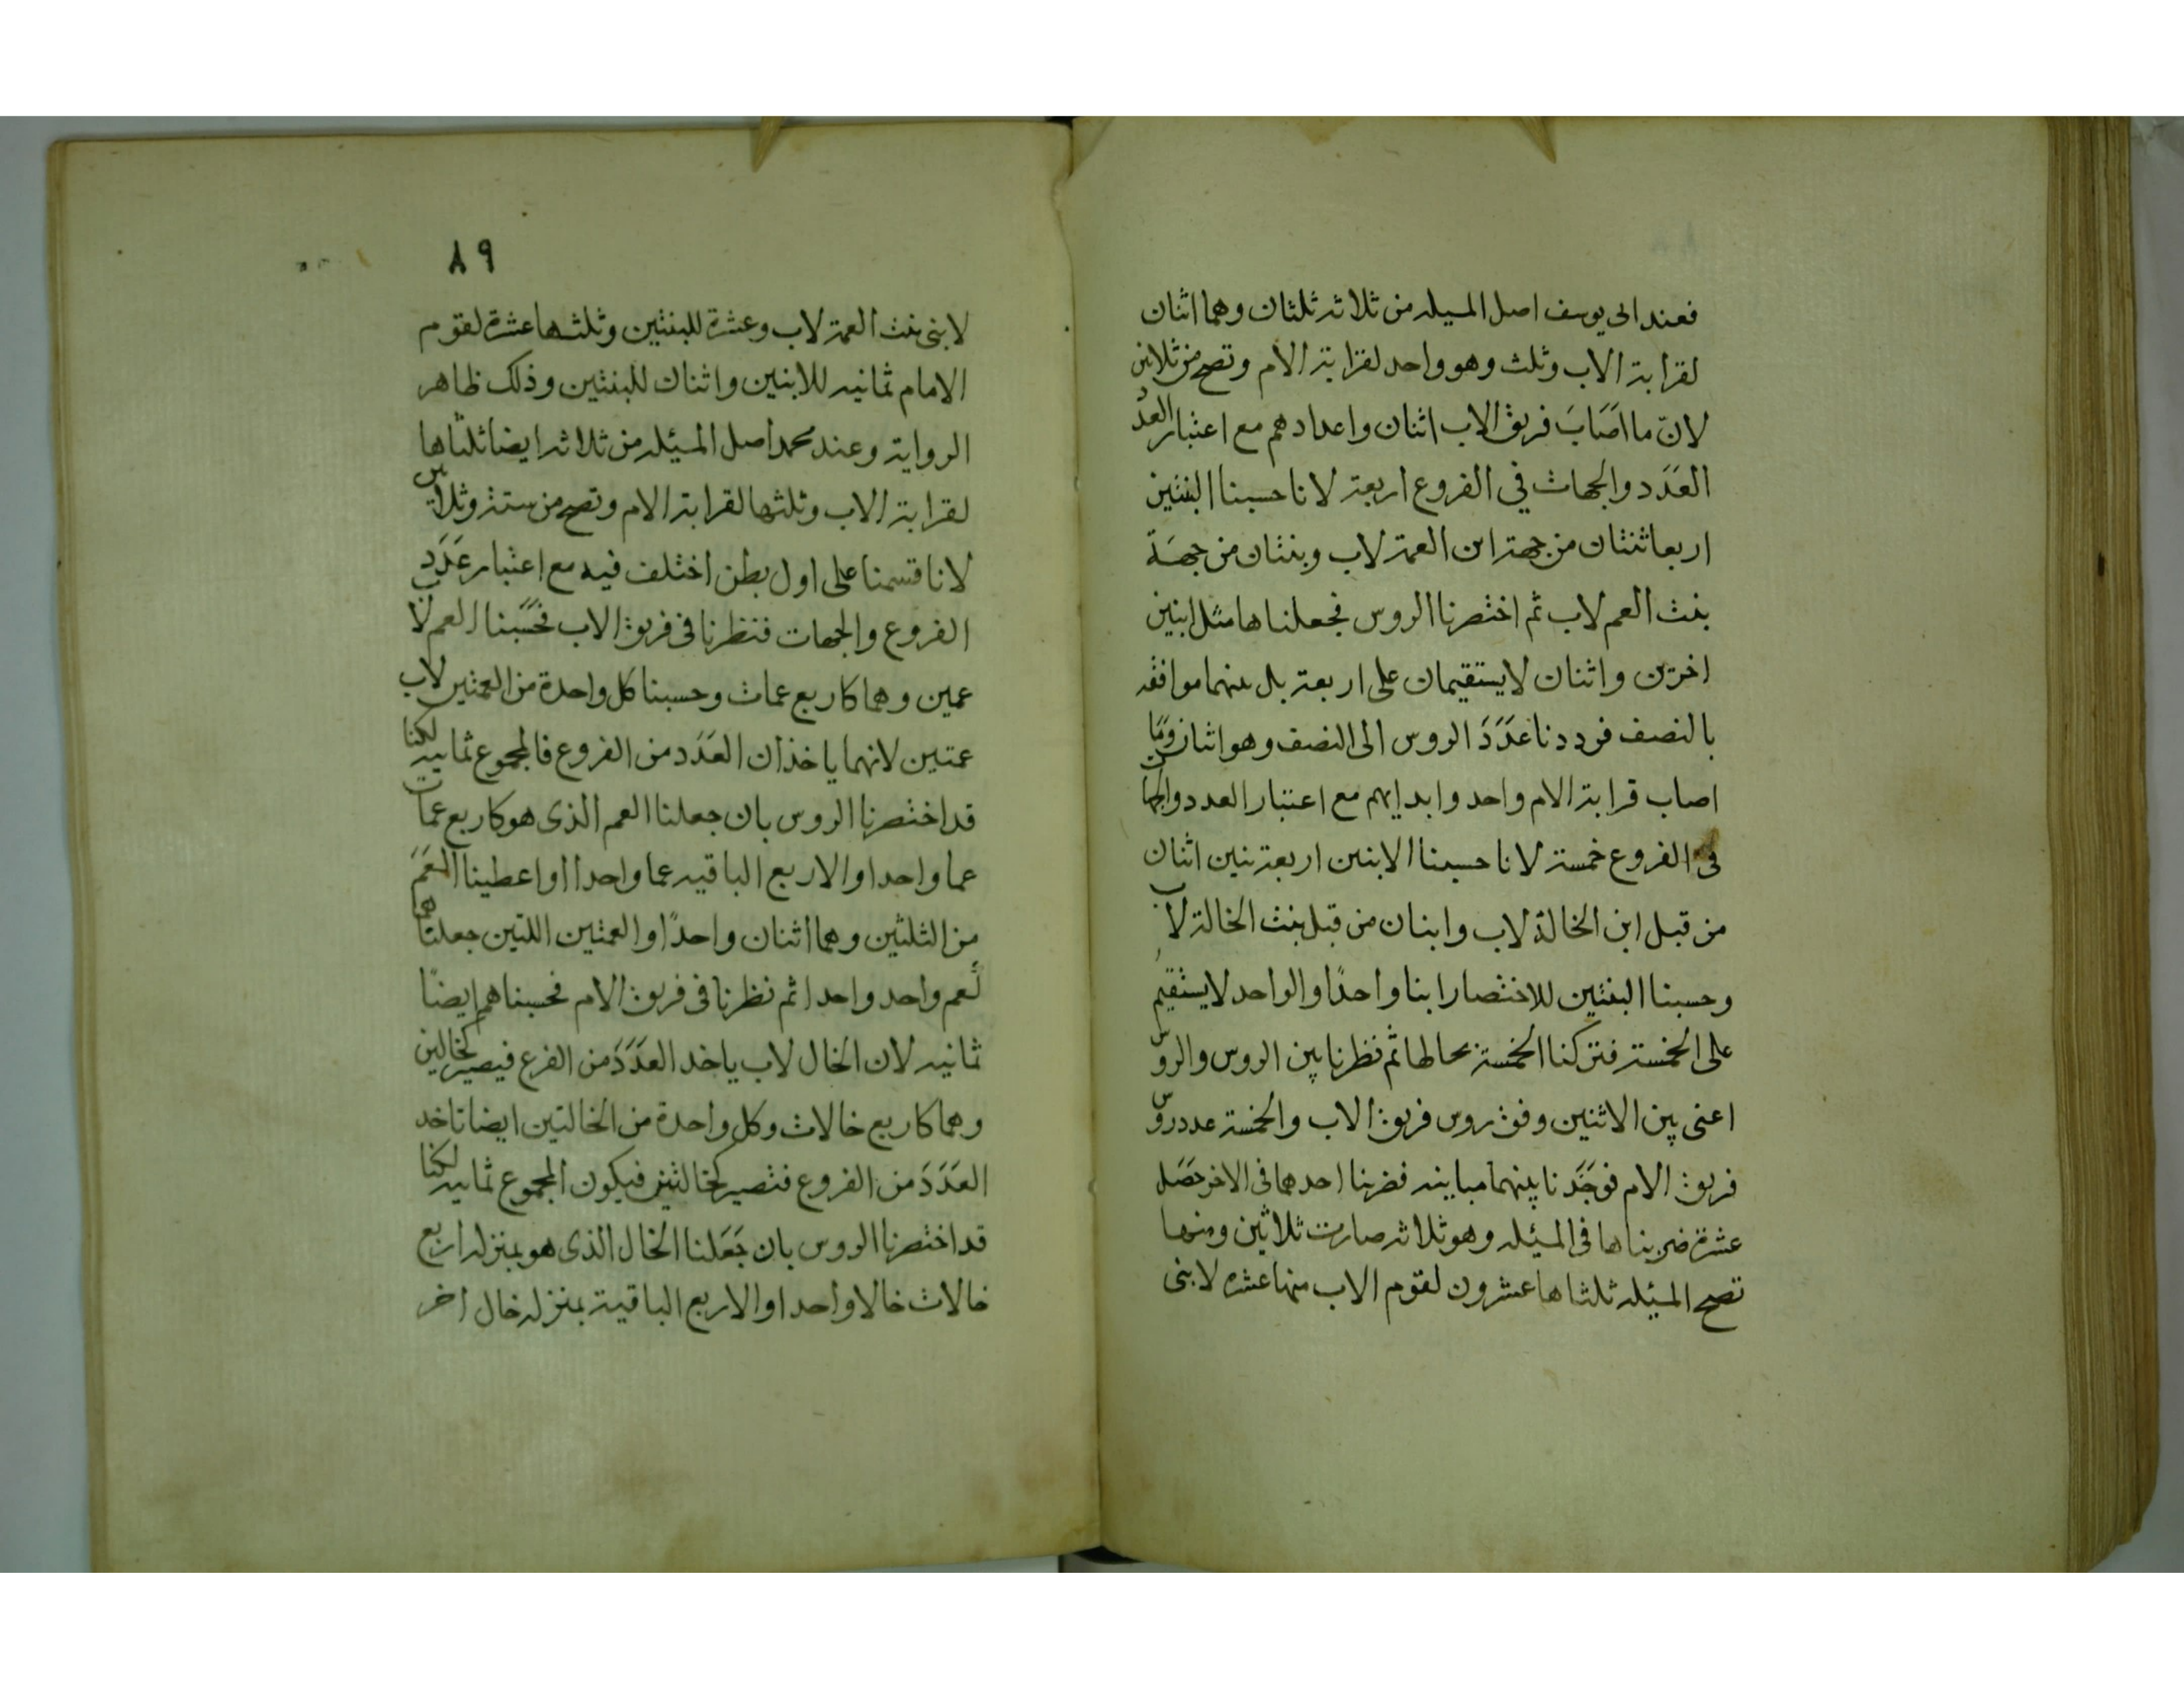 فعند ابى يوسف اصل المسيله من ثلاثه ثلثان وهما اثنان
لقرابة الاب وثلث وهو واحد لقرابة الام وتصح من ثلاثين
لان ما اصَابَ فريق الاب اثنان واعدادهم مع اعتبار العدد
العَدَد والجهات في الفروع اربعة لانا حسبنا البنتين
اربعا ثنتان من جهة ابن العمة لاب وبنتان من جهَة
بنت العم لاب ثم اختصرنا الروس فجعلناها مثل ابنين
اخرين واثنان لا يستقيمان على اربعة بل بينهما موافقه
بالنصف فرددنا عَدَدَ الروس الى النصف وهو اثنان ومَا
اصاب قرابة الام واحد وابدانهم مع اعتبار العدد والجهات
فى الفروع خمسة لانا حسبنا الابنين اربعة بنين اثنان
من قبل ابن الخالة لاب وابنان من قبل بنت الخالة لاب
وحسبنا البنتين للاختصار ابنا واحدًا والواحد لا يستقيمُ
على الخمسة فتركنا الخمسة بحالها ثم نظرنا بين الروس والروس
اعنى بين الاثنين وفق روس فريق الاب والخمسة عدد روس
فريق الام فوجَدَنا بينهما مباينه فضربنا احدهما فى الاخر حَصَل
عشرة ضربناها فى المسئله وهو ثلاثه صارت ثلاثين ومنها
تصح المسئله ثلثاها عشرون لقوم الاب منها عشره لابنى
٨٩
لابنى بنت العمة لاب وعشرة للبنتين وثلثها عشرة لقوم
الامام ثمانيه للابنين واثنان للبنتين وذلك ظاهر
الرواية وعند محمد اصل المسئله من ثلاثه ايضا ثلثاها
لقرابة الاب وثلثها لقرابة الام وتصح من ستة وثلاثين
لانا قسمنا على اول بطن اختلف فيه مع اعتبار عَدَدِ
الفروع والجهات فنظرنا فى فريق الاب فحَسَبنا العم لاب
عمين وهما كاربع عمات وحسبنا كل واحدة من العمتين لاب
عمتين لانهما ياخذان العَدَد من الفروع فالمجموع ثمانيه لكنا
قد اختصرنا الروس بان جعلنا العم الذى هو كاربع عمات
عما واحدا والاربع الباقيه عما واحدا او اعطينا العَمَ
من الثلثين وهما اثنان واحدًا والعمتين اللتين جعلناهما
كعم واحد واحدا ثم نظرنا فى فريق الام فحسبناهم ايضًا
ثمانيه لان الخال لاب ياخد العَدَدَ من الفرع فيصير كخالين
وهما كاربع خالات وكل واحدة من الخالتين ايضا تاخد
العَدَدَ من الفروع فتصير كخالتين فيكون المجموع ثمانيه لكنا
قد اختصرنا الروس بان جَعَلنا الخال الذى هو بمنزله اربع
خالات خالا واحدا والاربع الباقية بمنزله خال اخر